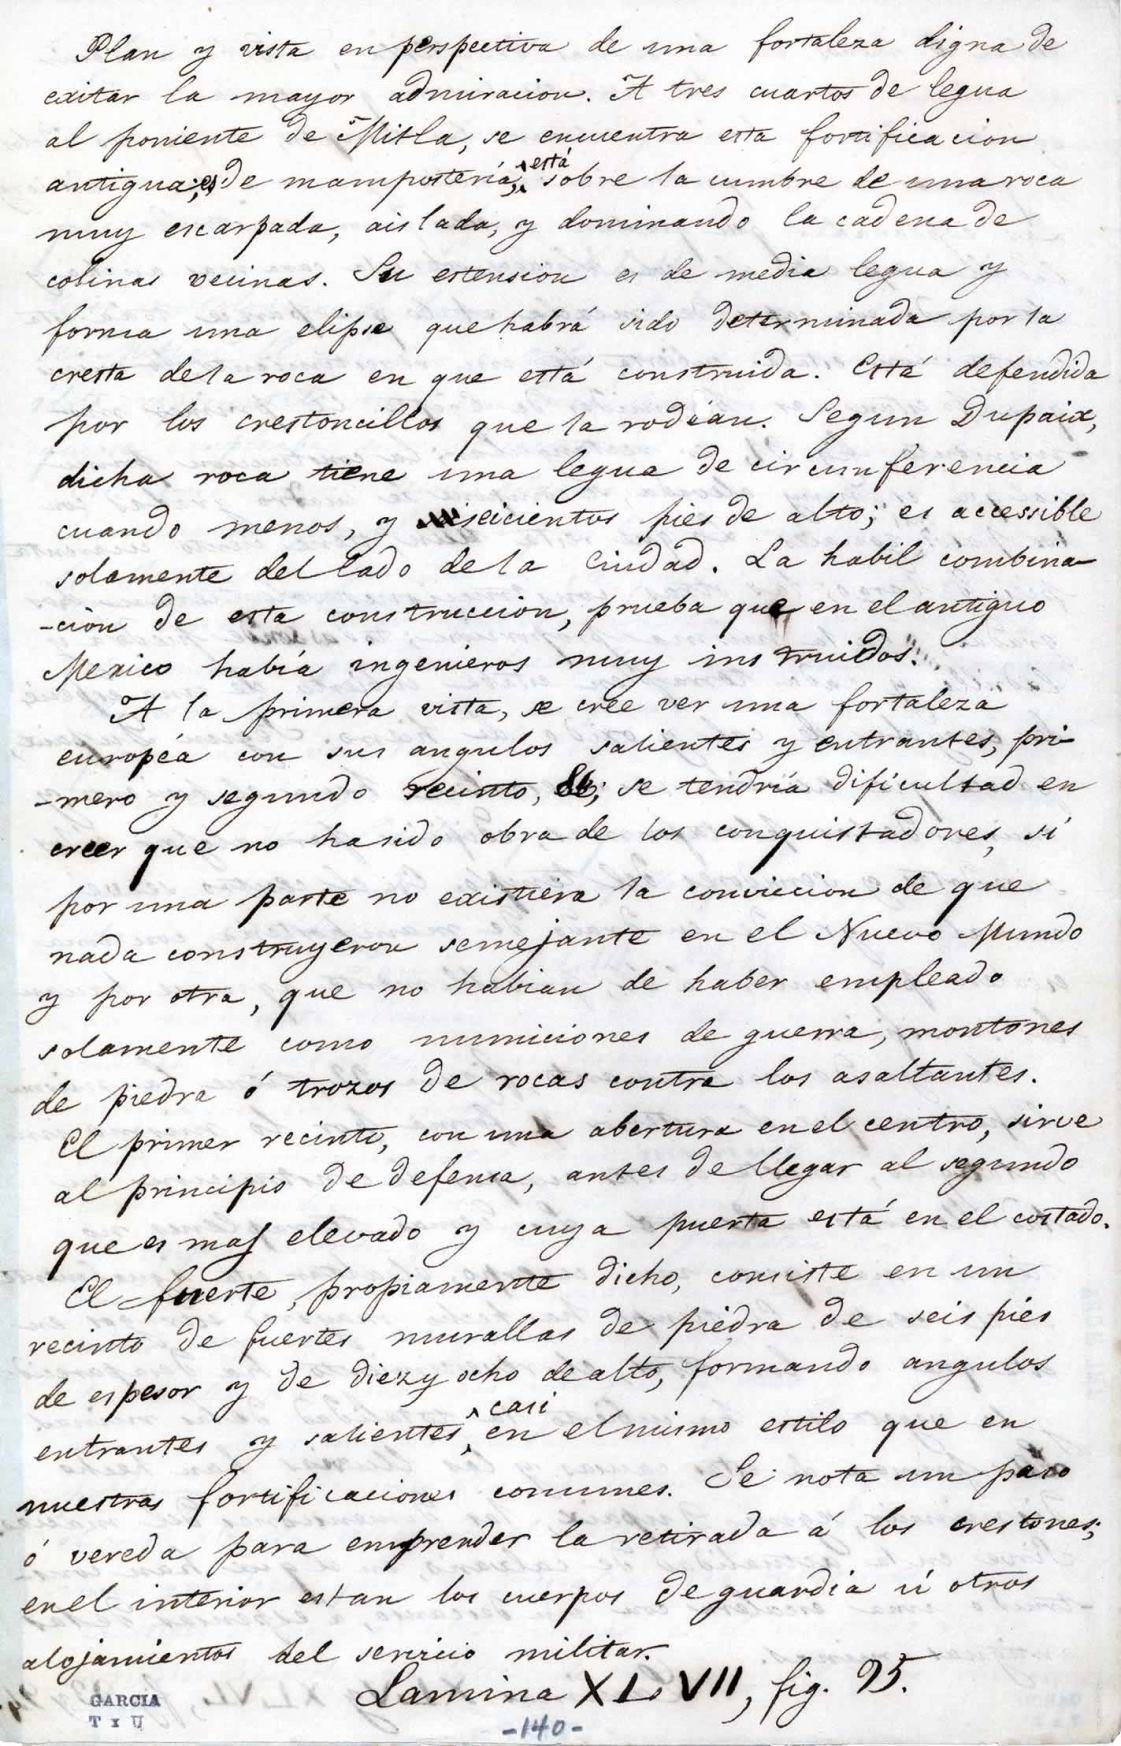 Plan y vista en perspectiva de una fortaleza digna de
exitar la mayor admiracion. A tres cuartos de legua
al poniente de Mitla, se encuentra esta fortificacion
antigua; es de mampostería; está sobre la cumbre de una roca
muy escarpada, aislada, y dominando la cadena de
colinas vecinas. Su estension es de media legua y
forma una elipse que habrá sido determinada por la
cresta de la roca en que está construida. Está defendida
por los crestoncillos que la rodéan. Segun Dupaix,
dicha roca tiene una legua de circunferencia
cuando menos, y seicientos pies de alto; es accessible
solamente del lado de la Ciudad. La habil combina-
-ción de esta construccion, prueba que en el antiguo
Mexico había ingenieros muy instruidos.
A la primera vista, se cree ver una fortaleza
européa con sus angulos salientes y entrantes, pri-
-mero y segundo recinto, &; se tendría dificultad en
creer que no ha sido obra de los conquistadores, sí
por una parte no existiera la conviccion de que
nada construyeron semejante en el Nuevo Mundo
y por otra, que no habian de haber empleado
solamente como municiones de guerra, montones
de piedra ó trozos de rocas contra los asaltantes.
El primer recinto, con una abertura en el centro, sirve
al principio de defensa, antes de llegar al segundo
que es mas elevado y cuya puerta está en el costado.
El fuerte, propiamente dicho, consiste en un
recinto de fuertes murallas de piedra de seis pies
de espesor y de diez y ocho de alto, formando angulos
entrantes y salientes, casi en el mismo estilo que en
nuestras fortificaciones comunes. Se nota un paso
ó vereda para emprender la retirada á los crestones;
en el interior estan los cuerpos de guardia ú otros
alojamientos del servicio militar.
Lamina XLVII, fig. 95.
GARCIA
-140-